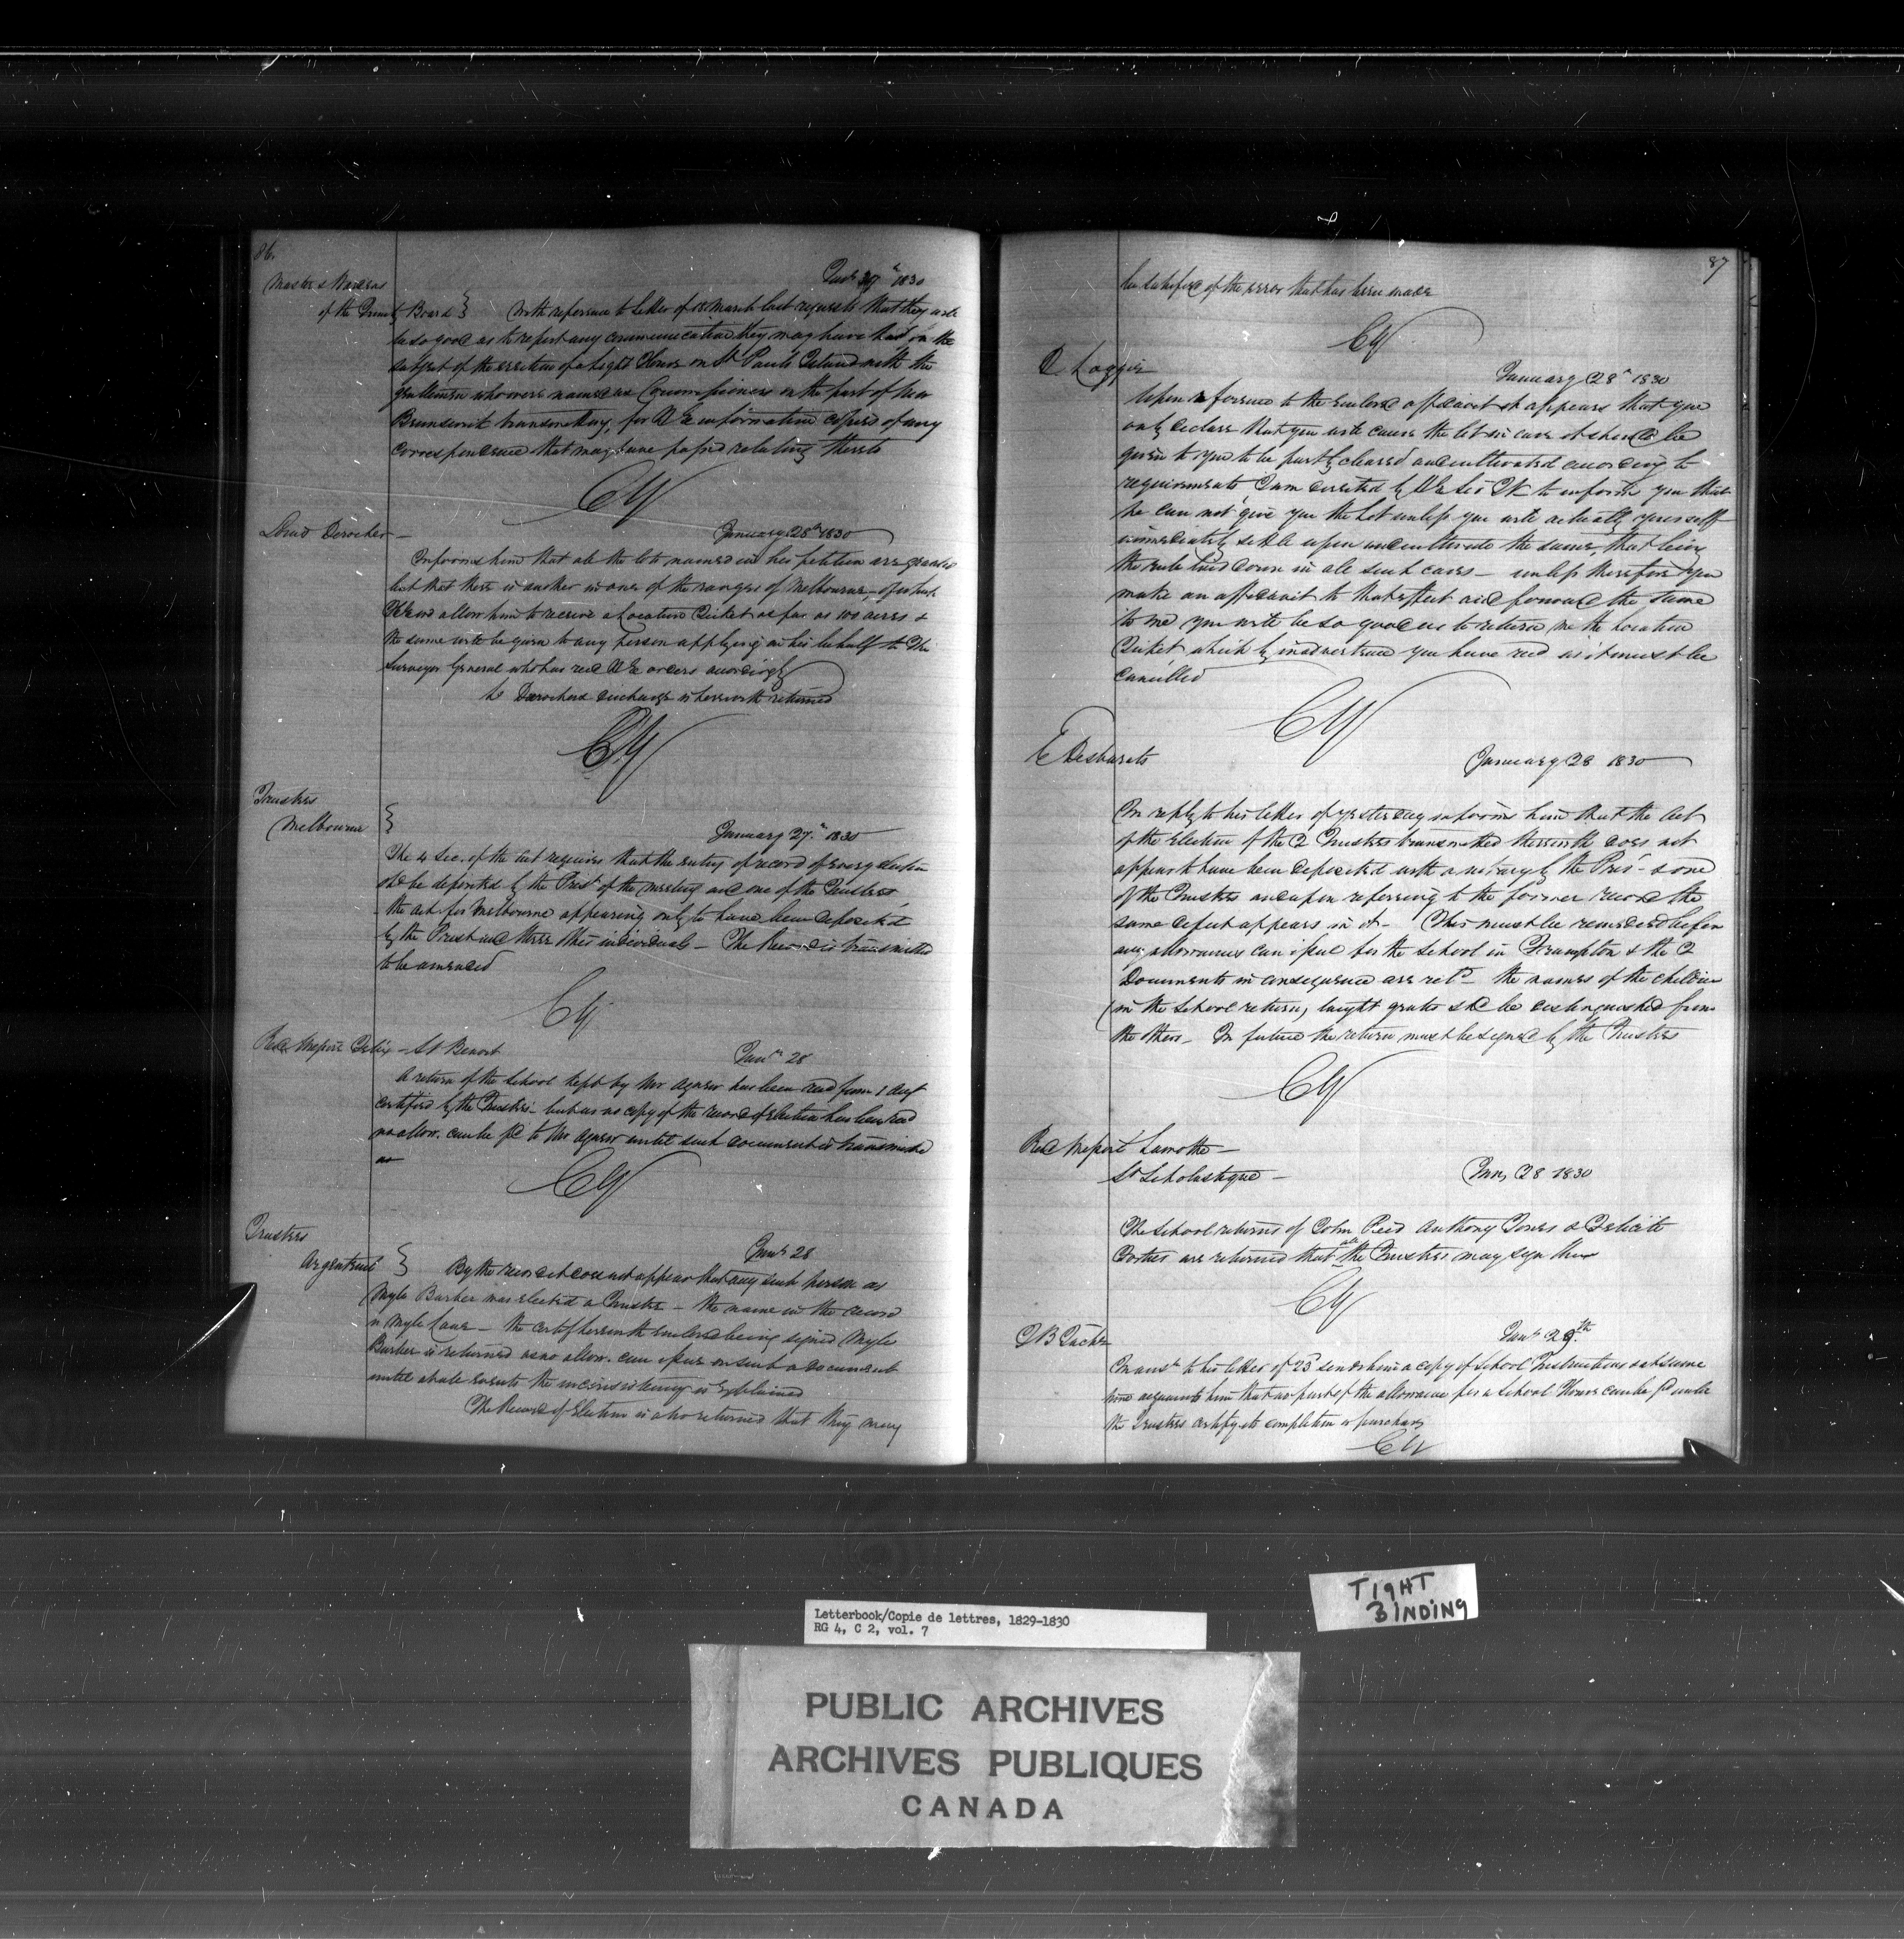 86.
Master & Wardens
of the Trinity Board }
1830
With reference to letter of 18 March last requests that they will
be so good as to report any communication they may have had on the
subject of the erection of a Light House on St Pauls Island with the
gentlemen who were named as Commissioners on the part of New
Brunswick transmitting, for H E information copies of any
correspondence that may have passed relating thereto
CY
Derocher -
January 28th 1830
Informs him that all the lots named in his petition are granted
but that there is another in one of the ranges of Melbourne, of which
HE will allow him to receive a Location Ticket as far as 100 acres &
the same will be given to any person applying on his behalf to The
Surveyor General who has recd H E orders accordingly
Derochers discharge is herewith returned
CY
Trustees
Melbourne }
January 27th 1830
The 4 Sec. of the Act requires that the entry of record of every election
shd be deposited by the Prest of the meeting and one of the Trustees
- the act for Melbourne appearing only to have been deposited
by the Prest and three other individuals - The Record is transmitted
to be amended
CY
Revd Messire Felix - St Benoit
Jany 28
A return of the School kept by Mr Agasow has been recd from 1 Augt
certified by the Trustees - but as no copy of the record of election has been recd
no allow. can be pd to Mr Agasow until such document is transmitted
CY
Trustees
Argenteuil }
Jany 28
By the record it does not appear that any such person as
Myle Barber was elected a Trustee - the name in the record
is Myle Lane - the certif herewith enclosed being signed Myle
Barber is returned as no allow. can issue on such a document
until the inconsistency is explained
The Record of Election is also returned that they may
87
be satisfied of the error that has been made
CY
Loggie
January 28th 1830
Upon reference to the enclosed affidavit it appears that you
only declare that you will cause the lot in case it should be
given to you to be partly cleared and cultivated according to
requirements I am directed by H E Sir J K to inform you that
he can not give you the Lot unless you will actually yourself
immediately settle upon and cultivate the same, that being
the rule laid down in all such cases - unless therefore you
make an affidavit to that effect and forward the same
to me you will be so good as to return me the Location
Ticket which by inadvertence you have recd as it must be
cancelled
CY
E Desbarats
January 28 1830
In reply to his letter of yesterday informs him that the Act
of the Election of the 2 Trustees transmitted therewith does not
appear to have been deposited with a notary by the Pres- & one
of the Trustees and upon referring to the former record the
same defect appears in it - This must be remedied before
any allowances can issue for the School in Frampton & the 2
Documents in consequence are retd - the names of the children
(in the School return) taught gratis shd be distinguished from
the others - In future the return must be signed by the Trustees
CY
Revd Messire Lamothe -
St Scholastique -
Jany 28 1830
The School returns of John Reed Anthony Jones & Felicité
Fortier are returned that all the Trustees may sign them
CY
J B Taché
Jany 29th
In answr to his letter of 23d sends him a copy of School Instructions & at same
time acquaints him that no part of the allowance for a School House can be pd until
the Trustees certify its completion or purchase
CY
TIGHT
BINDING
Letterbook/Copie de lettres, 1829-1830
RG 4, C 2, vol. 7
PUBLIC ARCHIVES
ARCHIVES PUBLIQUES
CANADA